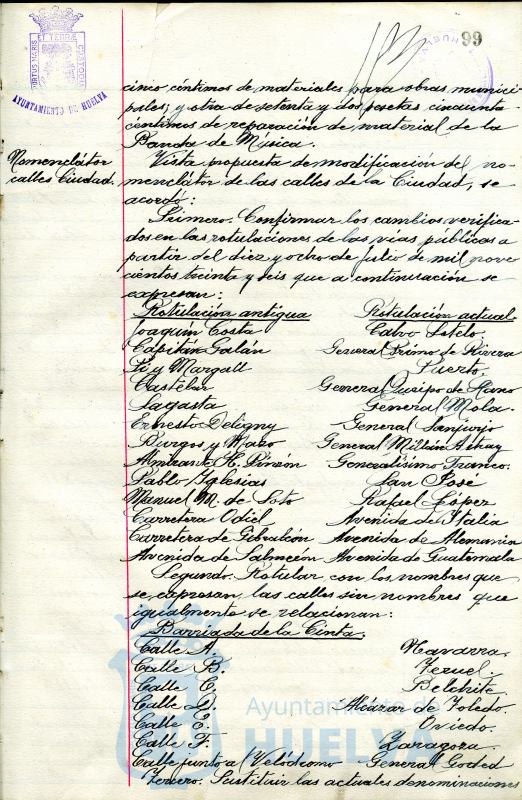 99
VIRTUS MARIS ET TERRÆ CUSTODIA
AYUNTAMIENTO DE HUELVA
cinco céntimos de materiales para obras munici-
pales, y otra de setenta y dos pesetas cincuenta
céntimos de reparación de material de la
Banda de Música.
Nomenclátor
calles Ciudad.
Vista propuesta de modificación del no-
menclátor de las calles de la Ciudad, se
acordó:
Primero. Confirmar los cambios verifica-
dos en las rotulaciones de las vías públicas a
partir del diez y ocho de julio de mil nove-
cientos treinta y seis que a continuación se
expresan:
Rotulación antigua Rotulación actual
Joaquín Costa Calvo Sotelo.
Capitán Galán General Primo de Rivera
Pi y Margall Puerto.
Castelar General Queipo de Llano
Sagasta General Mola.
Ernesto Deligny General Sanjurjo
Burgos y Mazo General Millán Astray
Almirante H. Pinzón Generalísimo Franco.
Pablo Iglesias San José
Manuel M. de Soto Rafael López
Carretera Odiel Avenida de Italia
Carretera de Gibraleón Avenida de Alemania
Avenida de Salmeón Avenida de Guatemala
Segundo. Rotular con los nombres que
se expresan, las calles sin nombres que
igualmente se relacionan:
Barriada de la Cinta.
Calle A. Navarra.
Calle B. Teruel.
Calle C. Belchite.
Calle D. Alcázar de Toledo.
Calle E. Oviedo.
Calle F. Zaragoza.
Calle junto a Velódromo General Goded
Tercero. Sustituir las actuales denominaciones
Ayuntamiento de
HUELVA